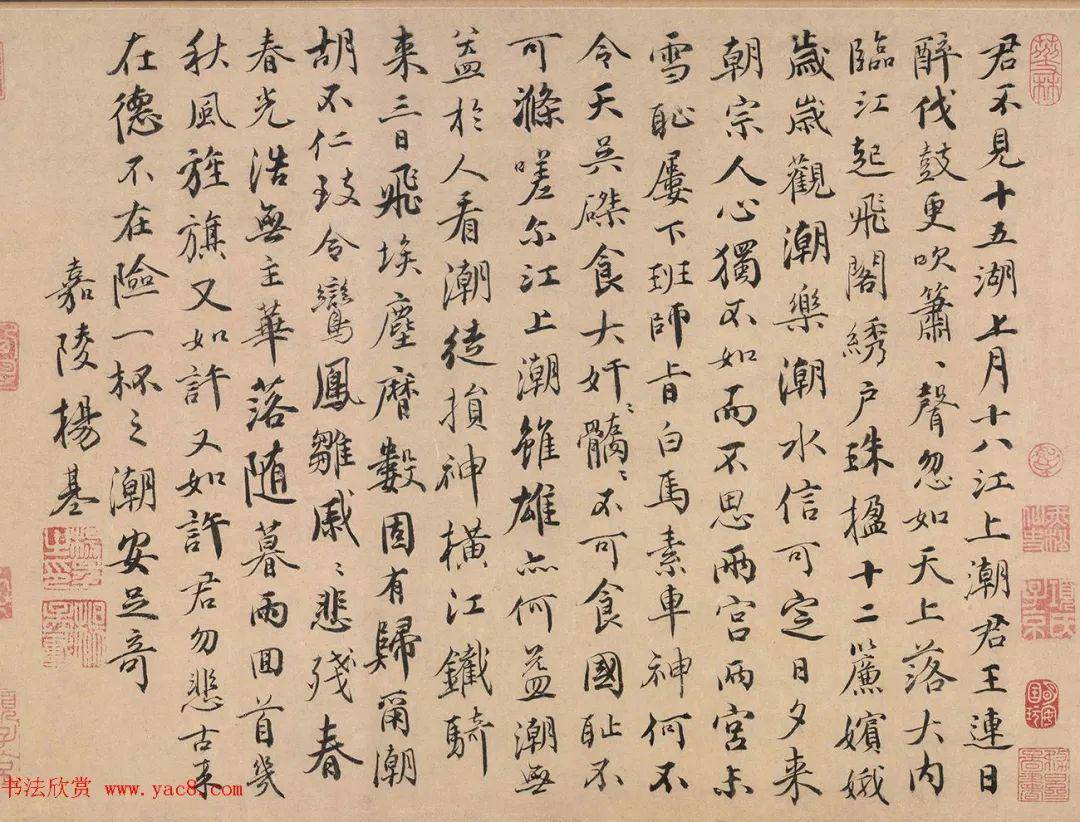 君不見十五湖上月十八江上潮君王連日
醉伐鼓更吹簫、聲忽如天上落大内
臨江起飛閣綉户珠楹十二簾嬪娥
歲歲觀潮樂潮水信可定日夕来
朝宗人心獨不如而不思兩宮兩宮未
雪恥屢下班師旨白馬素車神何不
令天吴磔食大奸、、不可食國恥不
可滌嗟尔江上潮雖雄亦何益潮無
益於人看潮徒損神横江鐵騎
来三日飛埃塵曆數固有歸爾潮
胡不仁致令鸞鳳雛戚、悲殘春
春光浩無主華落随暮雨回首幾
秋風旌旗又如許又如許君勿悲古来
在德不在險一杯之潮安足奇
嘉陵楊基
书法欣赏 www.yac8.com